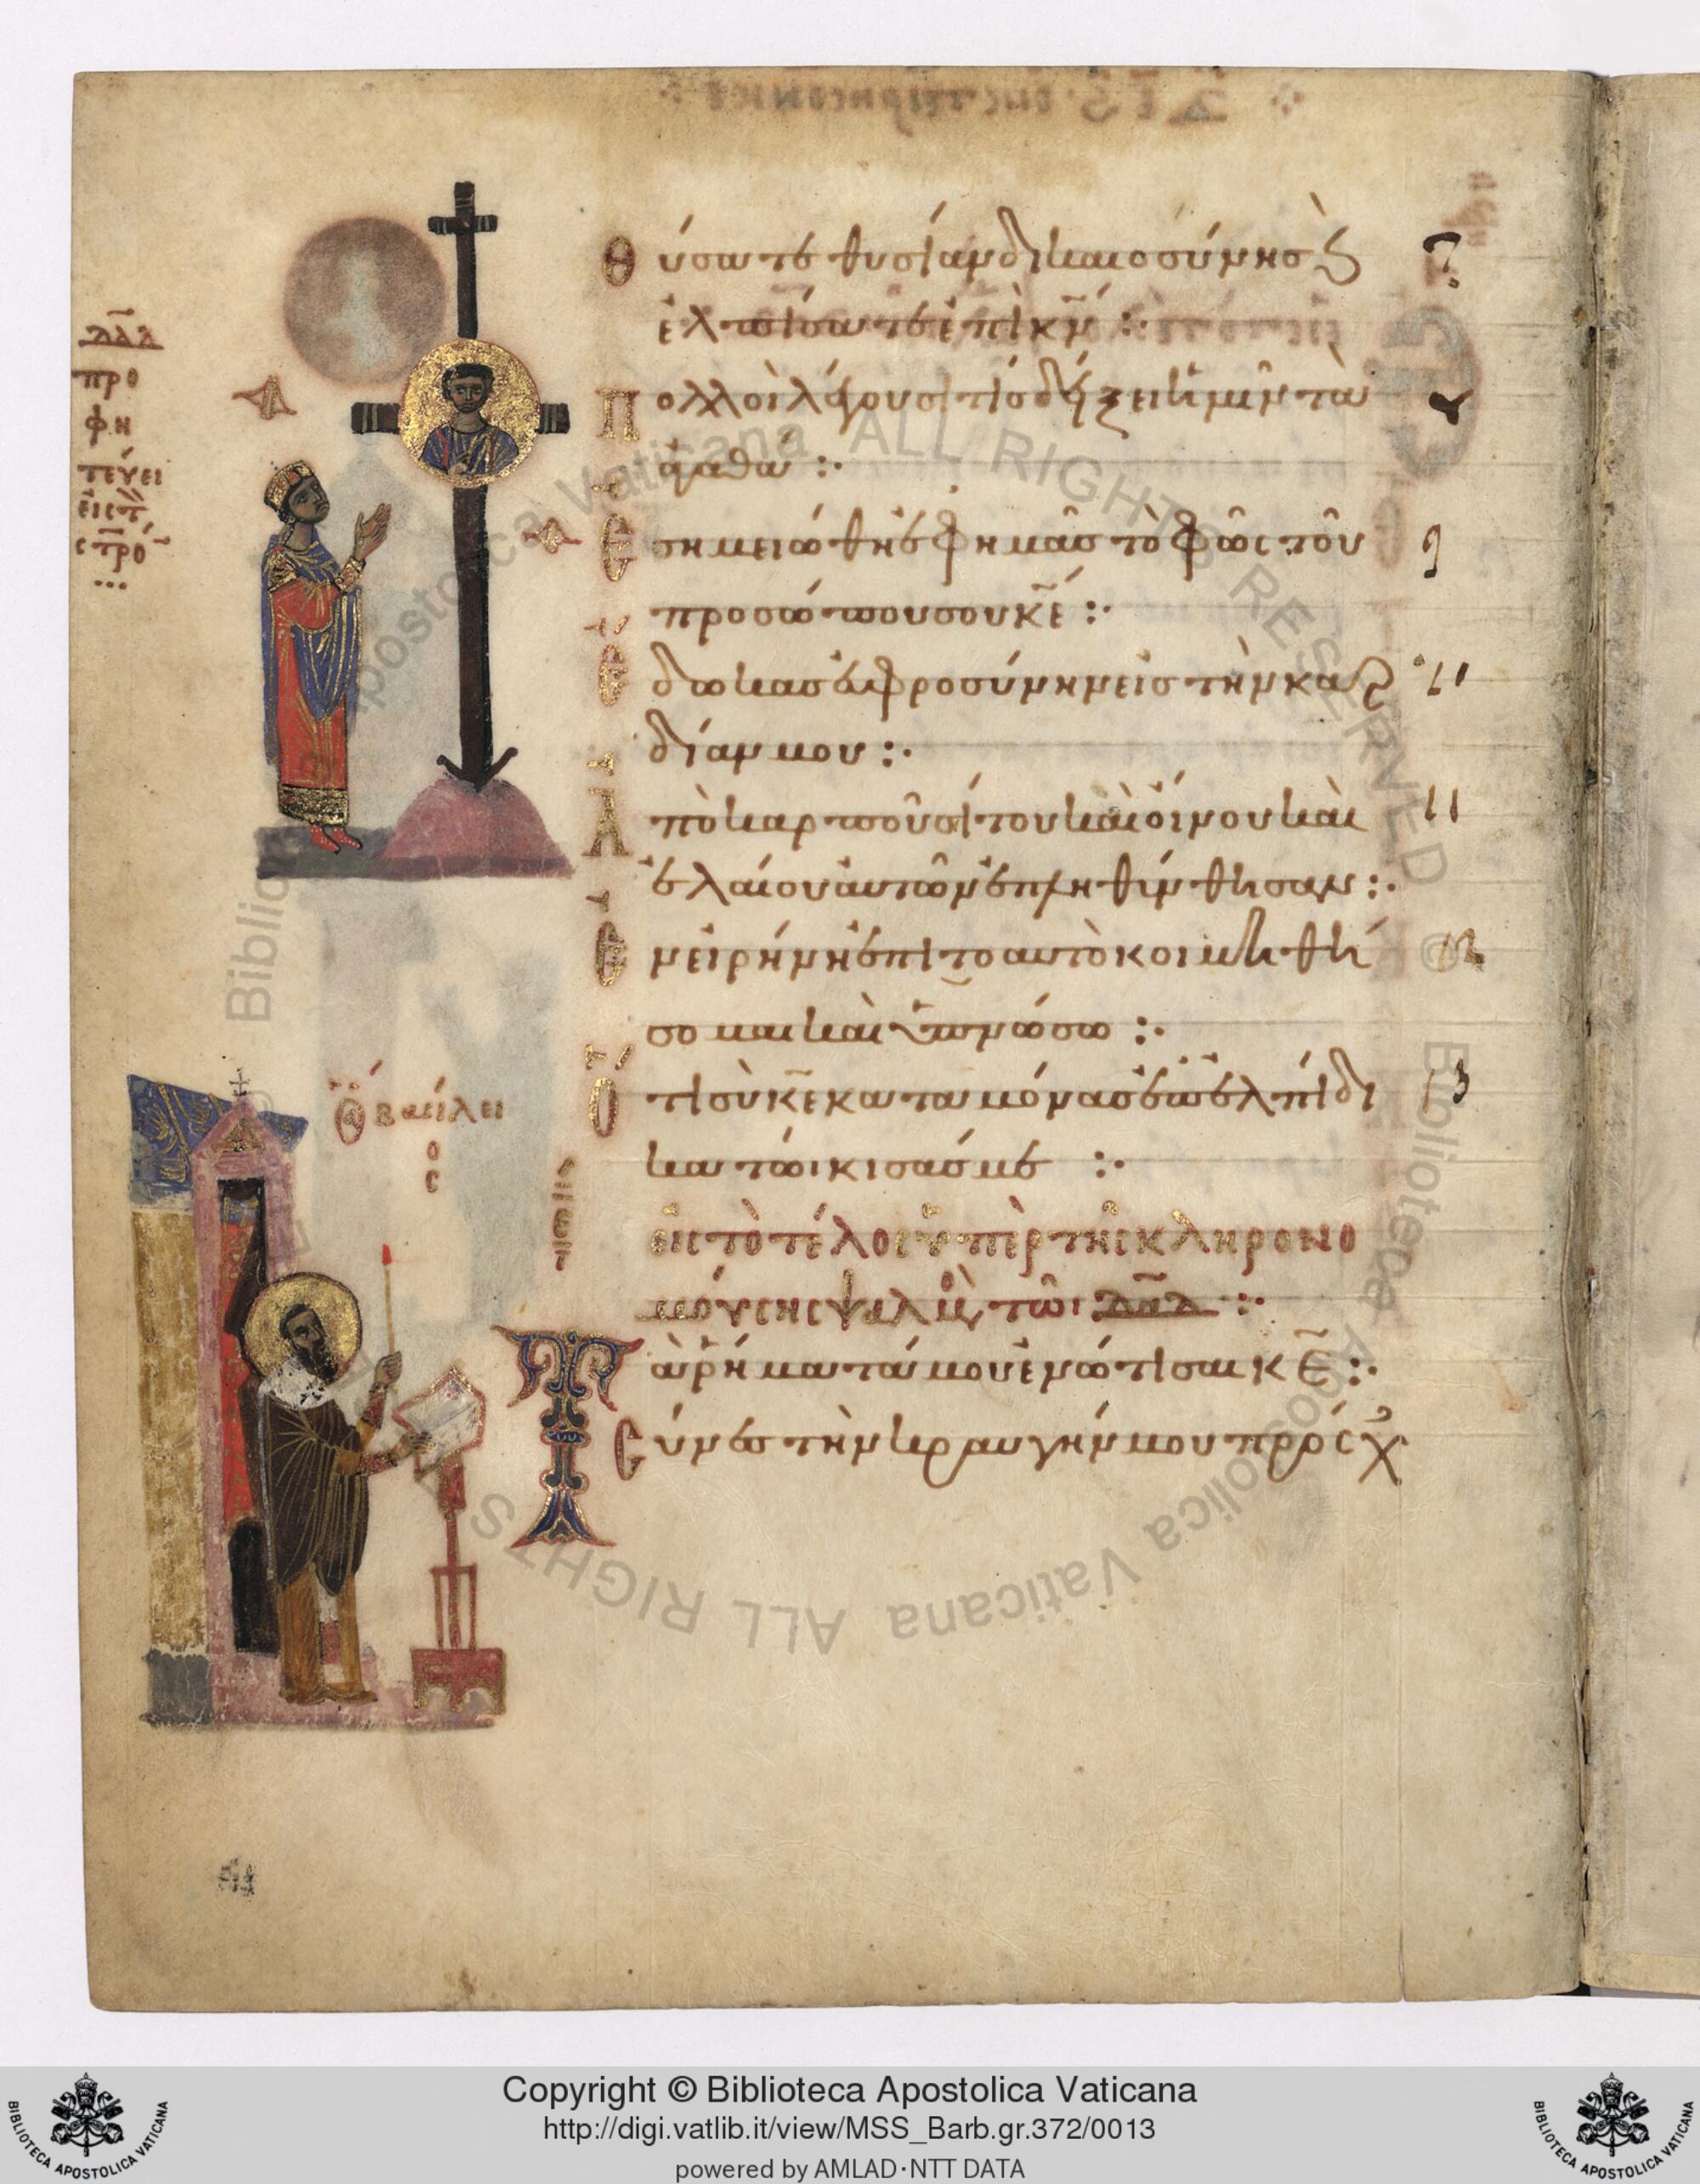 δᾱδ
προ
φη
τεύει
εἰς τ̀
στ̅ρό
Θύσατε θυσίαν δικαιοσύνης ϗ
ἐλπίσατε ἐπὶ κ̅ν̅ :·
Πολλοὶ λέγουσι τίς δείξει ἡμῖν τὰ
ἀγαθά :·
Ἐσημειώθη ἐφ ημᾶς τὸ φῶς τοῦ
προσώπου σου κ̅ε̅ :·
Ἔδωκας εὐφροσύνην εἰς τὴν καρ
δίαν μου :·
Ἀπὸ καρποῦ σίτου καὶ οἴνου καὶ
ἐλαίου αὐτῶν ἐπληθύνθησαν :·
Ἐν εἰρήνη ἐπιτοαυτὸ κοιμηθή
σομαι καὶ ὑπνώσω :·
Ὅτι σὺ κ̅ε̅ καταμόνας ἐπ ἐλπίδι
κατώικισάς με :·
εἰς τὸ τέλος ὑπὲρ τῆς κληρονο
μούσης ψαλμὸς τῶι δ̅α̅δ̅ :·
Τὰ ῥήματά μου ἐνώτισαι κ̅ε̅ :·
Σύνες τὴν κραυγήν μου πρόσχ
Ὁ βασίλει
ο
ς
7
9
10
11
12
13
Copyright © Biblioteca Apostolica Vaticana
http://digi.vatlib.it/view/MSS_Barb.gr.372/0013
powered by AMLAD·NTT DATA
BIBLIOTECA APOSTOLICA VATICANA
BIBLIOTECA APOSTOLICA VATICANA